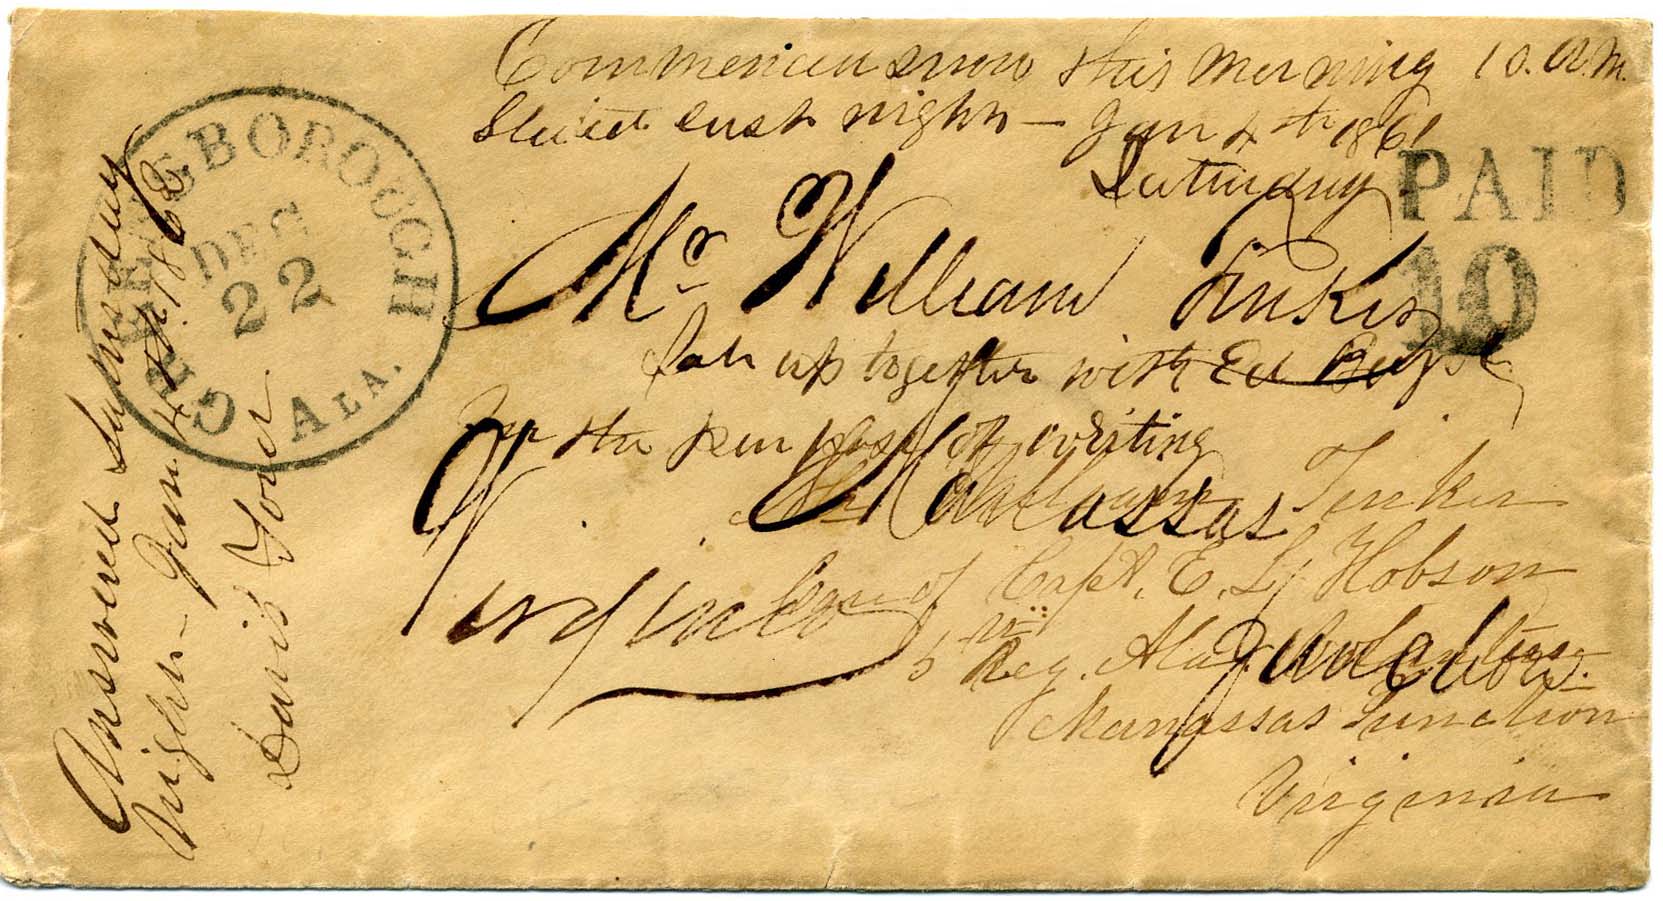 Commenced snow this morning 10. A.M.
Sleited last night – Jan 4th 186
Saturday
PAID
10
GREENSBOROUGH
DEC
22
ALA.
Mr William Tinker
Sat up together with Ed
for the purpose of writing
Manassas
Junction
Virginia
Mr William Tinker
Care of Capt. E. L. Hobson
5th Reg. Ala. Volunteers
Manassas Junction
Virginia
Answered Saturday
Night – Jan 4th 1862
Davis Ford